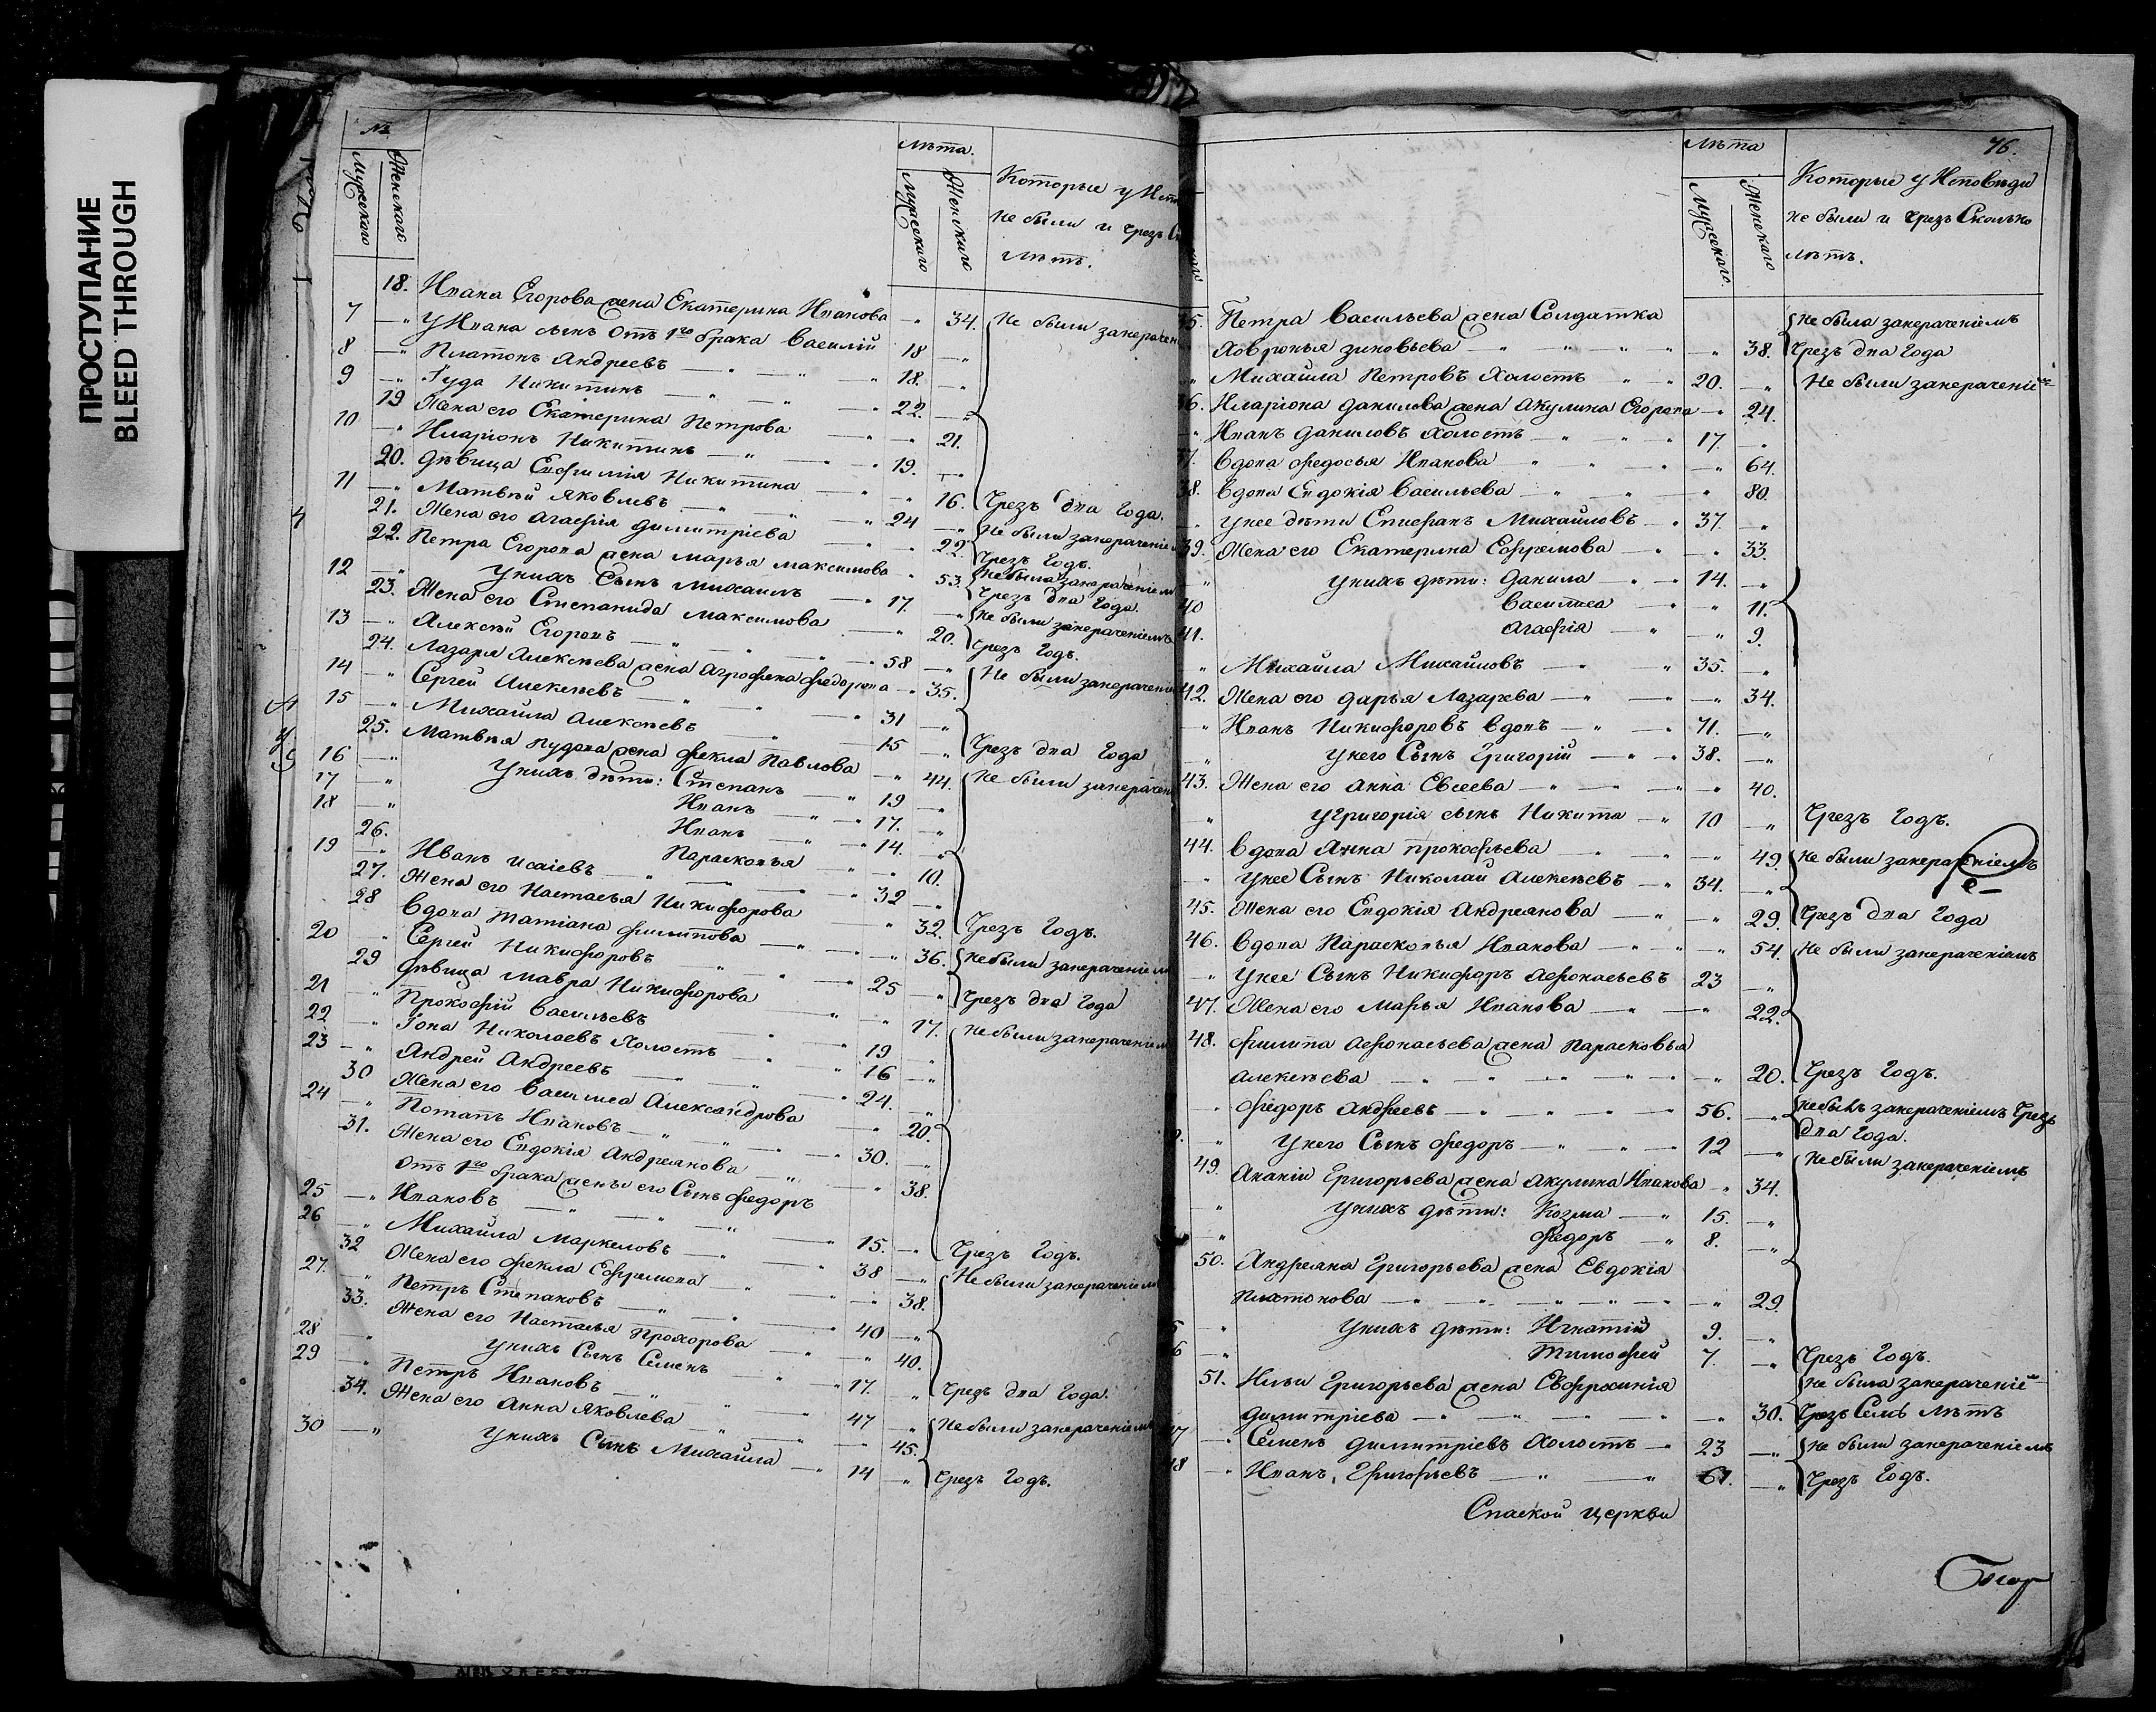 ПРОСТУПАНИЕ
BLEED THROUGH
№
Мужескаго
Женскаго
Лѣта.
Мужескаго
Женскаго
Которые у
не были и чрезъ
Лѣтъ.
18. Ивана Егорова жена Екатерина Иванова — " 34. Не были за
7 — " У Ивана сынъ отъ 1го брака Василій 18 — "
8 — " Платонъ Андреевъ — " — " 18. — "
9 — " Іуда Никитинъ — " — " 22. — "
19 Жена его Екатерина Петрова — " — " 21.
10 — " Иларіонъ Никитинъ — " — " 19. — "
20. Дѣвица Евфимія Никитина — " — " 16. Чрезъ два Года.
11 — " Матвѣй Яковлевъ — " — " 24 — " Не были занераченіем
21. Жена его Агафія Димитріева — " — " 22. Чрезъ Годъ.
22. Петра Егорова жена Марья Максимова — " 53. Не была занераченіем
Чрезъ два Года.
12 — " У нихъ Сынъ Михаилъ — " 17. — " Не были занераченіемъ
23. Жена его Степанида Максимова — " 20. Чрезъ Годъ.
13 — " Алексѣй Егоровъ — " — " 58 — " Не были занерачені
24. Лазаря Алексѣева жена Агрофена Федорова — " 35.
14 — " Сергей Алексѣевъ — " — " 31 — "
15 — " Михайла Алексѣевъ — " 15 — " Чрезъ два Года
25. Матвѣя жена Фекла Павлова — " 44. Не были занерачен
16 — " У нихъ дѣти: Степанъ — " 19 — "
17 — " Иванъ — " 17. — "
18 — " Иванъ — " 14. — "
26. Парасковья — " — " 10.
19 — " Иванъ Исаіевъ — " — " 32 — "
27. Жена его Настасья Никифорова — " 32. Чрезъ Годъ.
28 Вдова Татіана Филипова — " — " 36. Не были занераченіем
20 " Сергей Никифоровъ — " 25 — " Чрезъ два Года
29 Дѣвица Мавра Никифорова — " 17. Не были занераченіем
21 — " Прокофій Васильевъ — " 19 — "
22 — " Іона Николаевъ Холостъ — " 16 — "
23 — " Андрей Андреевъ — " — " 24. — "
30 Жена его Василиса Александрова — " 20.
24 — " Потапъ Ивановъ — " — " 30. — "
31. Жена его Евдокія Андреянова — " — " 38.
Отъ 1го брака жены его Сынъ Федоръ
25 — " Ивановъ — " — " 15. — " Чрезъ Годъ.
26 — " Михайла Маркеловъ — " 38 — " Не были занераченіем
32 Жена его Фекла Ефремова — " — " 38.
27. " Петръ Степановъ — " — " 40 — "
33. Жена его Настасья Прохорова — " 40.
28 — " У нихъ Сынъ Семенъ — " 17. — " Чрезъ два Года.
29 — " Петръ Ивановъ — " — " 47 — " Не были занераченіем
34. Жена его Анна Яковлева — " — " 45.
30 — " У нихъ Сынъ Михайла — " 14 — " Чрезъ Годъ.
Лѣта
Мужескаго.
Женскаго
76.
Которые у Исповѣди
не были и чрезъ Сколько
лѣтъ.
35. Петра Васильева жена Солдатка Не была занераченіемъ
Ховронья Зиновьева " " " — " 38. Чрезъ два Года
" Михайла Петровъ Холостъ " " 20. — " Не были занераченіе
36. Иларіона Данилова жена Акулина Егорова — " 24.
" Иванъ Даниловъ Холостъ — " — " 17. — "
37. Вдова Федосья Иванова — " — " 64.
38. Вдова Евдокія Васильева — " — " 80.
" У нее дѣти Епифанъ Михайловъ — " 37. — "
39. Жена его Екатерина Ефремова — " — " 33
" У нихъ дѣти: Данила — " 14. — "
40 Василиса — " — " 11.
41. Агафія — " — " 9.
" Михайла Михайловъ — " 35. — "
42. Жена его Дарья Лазарева — " — " 34.
" Иванъ Никифоровъ Вдовъ — " 71. — "
" У него Сынъ Григорій — " 38. — "
43. Жена его Анна Евсеева — " — " 40.
" У Григорія сынъ Никита — " 10 — " Чрезъ Годъ.
44. Вдова Анна Прокофьева — " — " 49. Не были занераченіемъ
" У нее Сынъ Николай Алексѣевъ — " 34. — "
45. Жена его Евдокія Андреянова — " — " 29. Чрезъ два Года
46. Вдова Парасковья Иванова — " — " 54. Не были занераченіемъ
" У нее Сынъ Никифоръ Афонасьевъ 23 — "
47. Жена его Марья Иванова — " — " 22.
48. Филипа Афонасьева жена Парасковья
Алексѣева — " — " — " 20. Чрезъ Годъ.
" Федоръ Андреевъ — " — " 56. — " Не былъ занераченіемъ Чрезъ
два Года.
" У него Сынъ Федоръ — " — " 12 — " Не были занераченіемъ
49. Ананіи Григорьева жена Акулина Иванова — " 34.
" У нихъ дѣти: Козма — " 15. — "
" Федоръ — " 8. — "
50. Андреяна Григорьева жена Евдокія
Платонова — " — " — " 29
5 " У нихъ дѣти: Игнатій 9. — "
6 — " Тимофей 7. — " Чрезъ Годъ.
51. Ильи Григорьева жена Евфросинія Не была занераченіе
Димитріева — " — " — " 30. Чрезъ Семь Лѣтъ
47 — " Семенъ Димитріевъ Холостъ — " 23 — " Не были занераченіемъ
48 — " Иванъ Григорьевъ — " — " 61. — " Чрезъ Годъ.
Спаской церкви